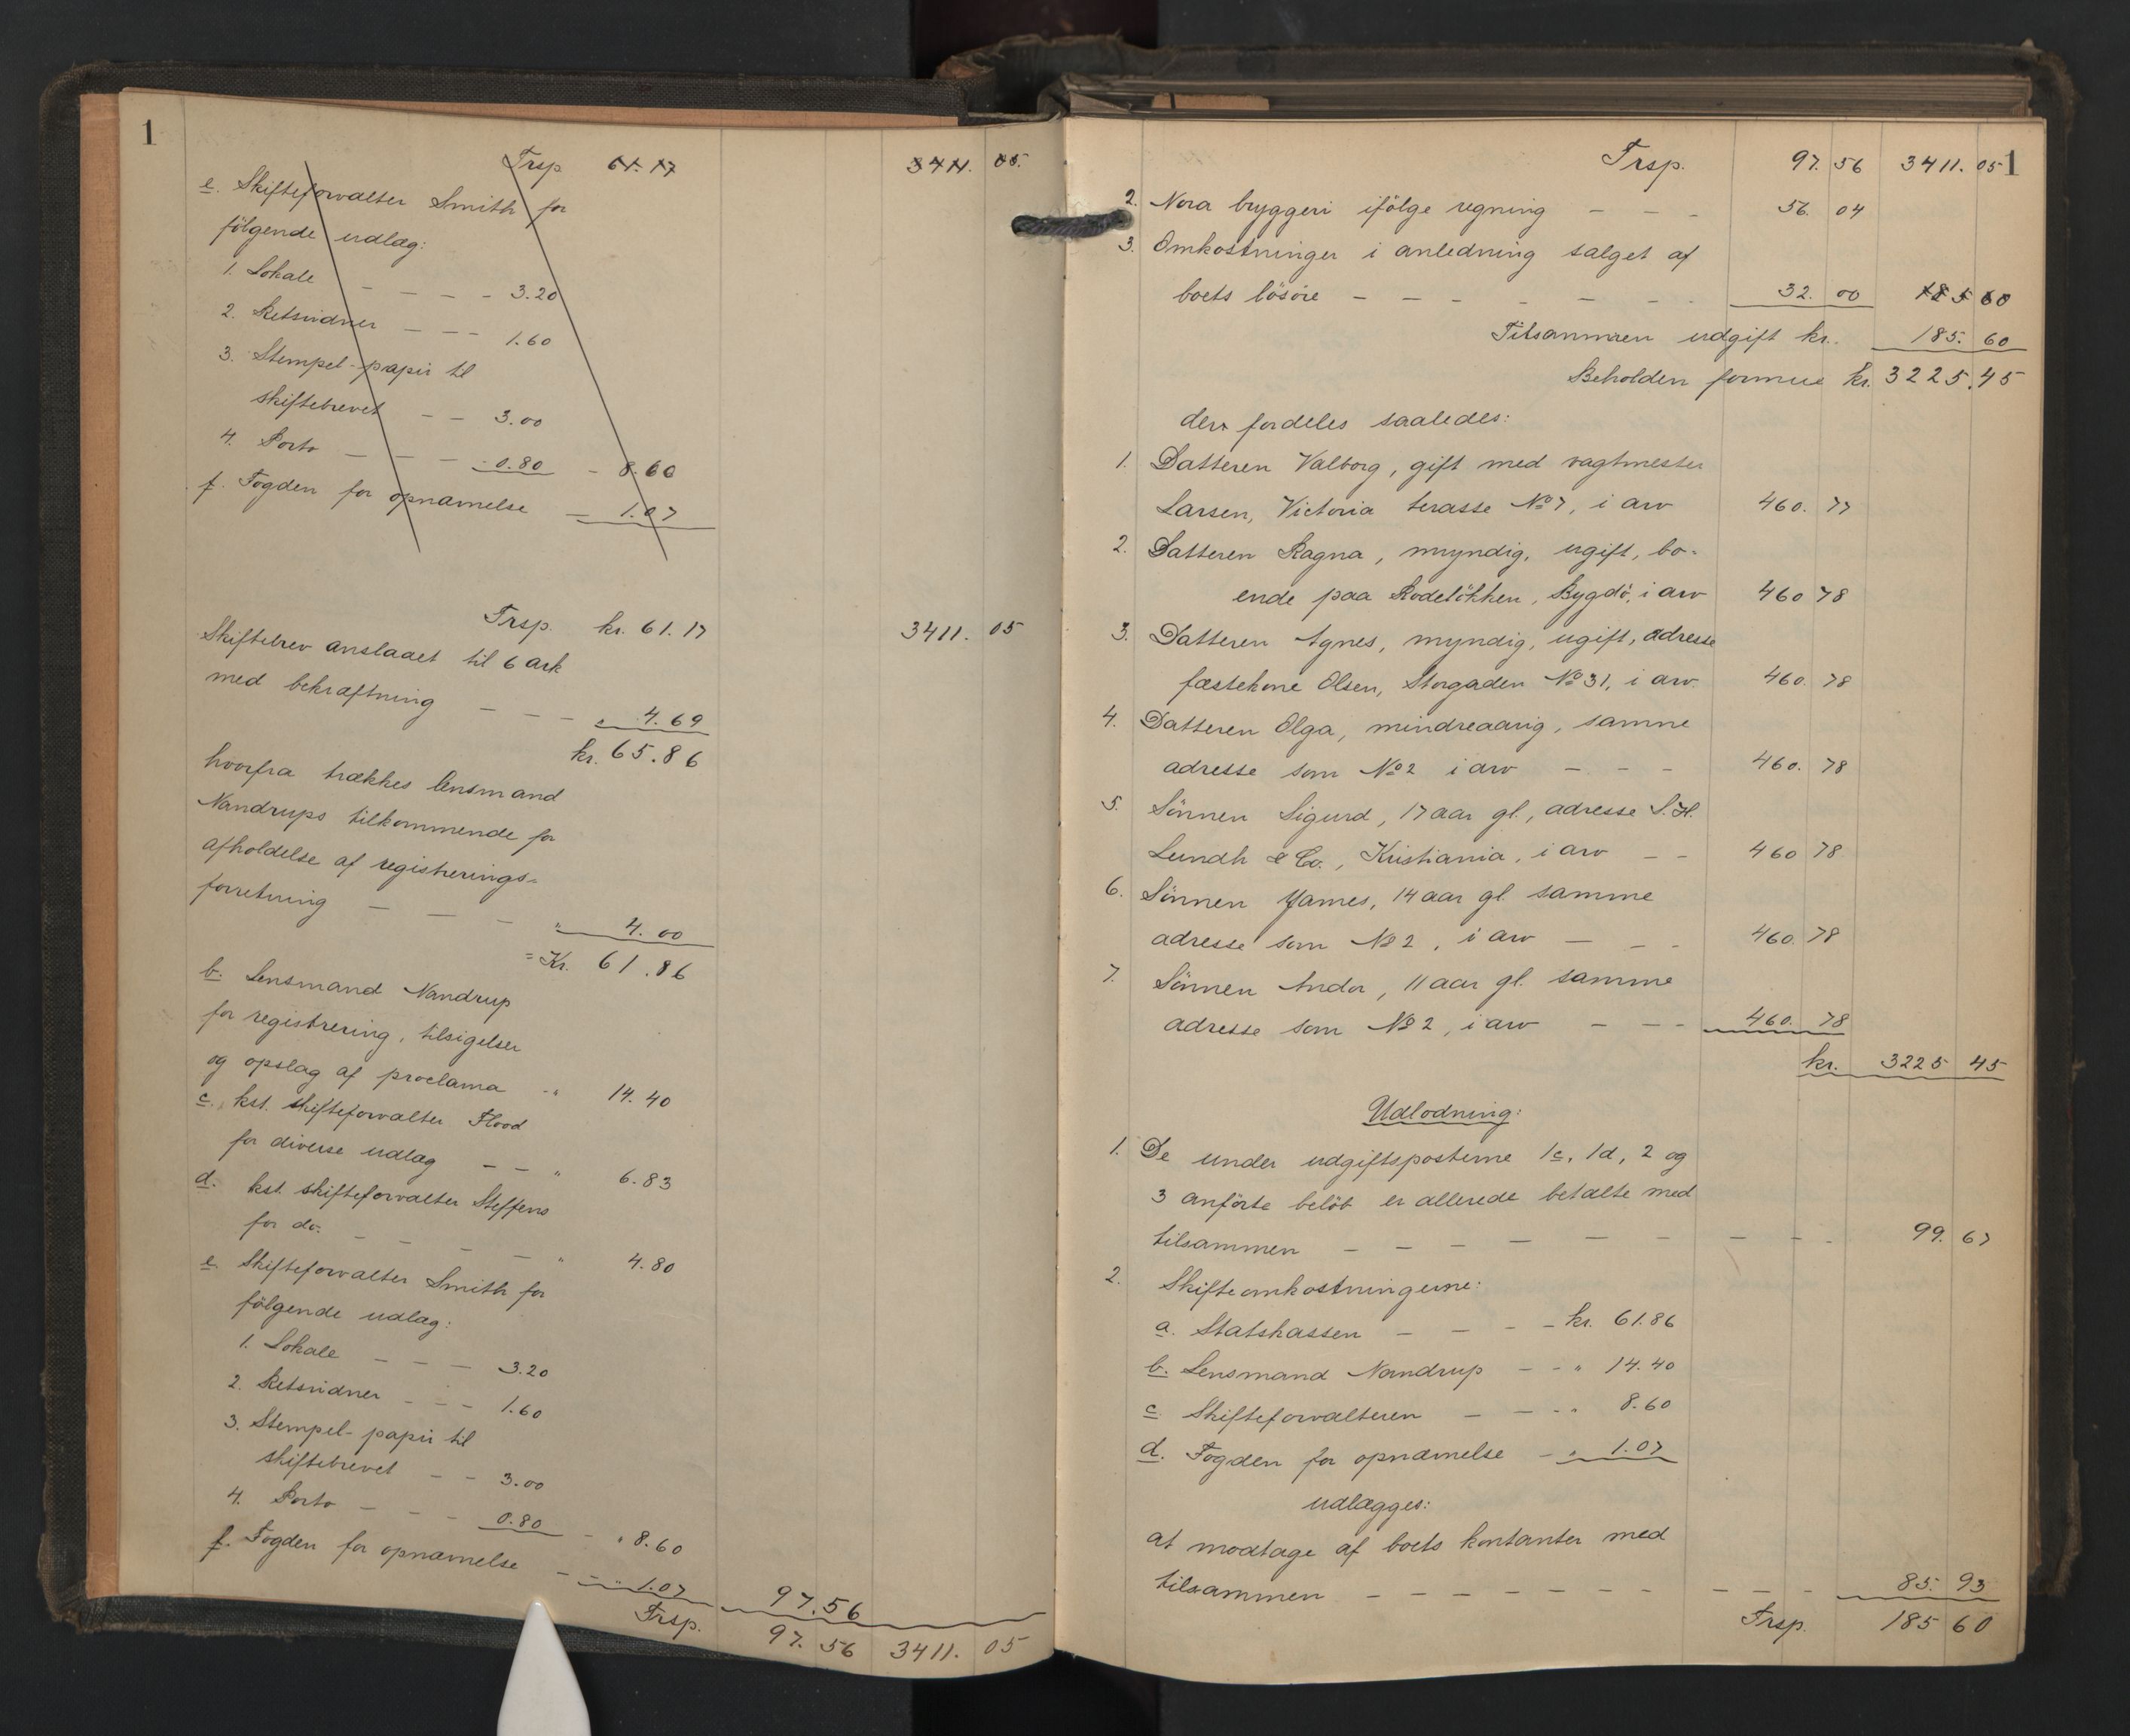 1
Trsp. 61.17 3411. 05.
e. Skifteforvalter Smith for
følgende udlæg:
1. Lokale – – – – 3.20
2. Retsvidner – – – 1.60
3. Stempel-papir til
skiftebrevet – – 3.00
4. Porto – – – 0.80 – 8.60
f. Fogden for opnævnelse – 1.07
Trsp. kr. 61.17 3411. 05
Skiftebrev anslaaet til 6 ark
med bekræftning – – – " 4.69
kr. 65.86
hvorfra trækkes lensmand
Nandrups tilkommende for
afholdelse af registrerings-
forretning – – – " 4.00
= Kr. 61.86
b. Lensmand Nandrup
for registrering, tilsigelser
og opslag af proclama - " 14.40
c. kst. skifteforvalter Flood
for diverse udlæg – – " 6.83
d. kst. skifteforvalter Steffens
for do. – – – – " 4.80
e. Skifteforvalter Smith for
følgende udlæg:
1. Lokale – – – 3.20
2. Retsvidner – – – 1.60
3. Stempel-papir til
skiftebrevet – – 3.00
4. Porto – – – 0.80 – " 8.60
f. Fogden for opnævnelse – – " 1.07 97.56
Trsp. 97. 56 3411. 05
1
Trsp. 97. 56 3411. 05
2. Nora bryggeri ifølge regning – – – 56. 04
3. Omkostninger i anledning salget af
boets løsøre – – – – – – 32. 00 185 60
Tilsammen udgift kr. 185. 60
Beholden formue kr. 3225.45
der fordeles saaledes:
1. Datteren Valborg, gift med vagtmester
Larsen, Victoria terasse No 7, i arv 460. 77
2. Datteren Ragna, myndig, ugift, bo-
ende paa Rodeløkken, Bygdø, i arv 460 78
3. Datteren Agnes, myndig, ugift, adresse
fæstekone Olsen, Storgaden No 31, i arv. 460. 78
4. Datteren Olga, mindreaarig, samme
adresse som No 2 i arv – – – 460. 78
5. Sønnen Sigurd, 17 aar gl., adresse S. H.
Lundh & Co., Kristiania, i arv – – 460 78
6. Sønnen James, 14 aar gl. samme
adresse som No 2, i arv – – – 460. 78
7. Sønnen Andor, 11 aar gl. samme
adresse som No 2, i arv – – – 460. 78
kr. 3225 45
Udlodning:
1. De under udgiftsposterne 1c, 1d, 2 og
3 anførte beløb er allerede betalte med
tilsammen – – – – – – – – – 99. 67
2. Skifteomkostningerne:
a. Statskassen – – – – kr. 61.86
b. Lensmand Nandrup – – " 14.40
c. Skifteforvalteren – – – " 8.60
d. Fogden for opnævnelse – " 1.07
udlægges:
at modtage af boets kontanter med
tilsammen – – – – – – – – – – 85. 93
Trsp. 185 60